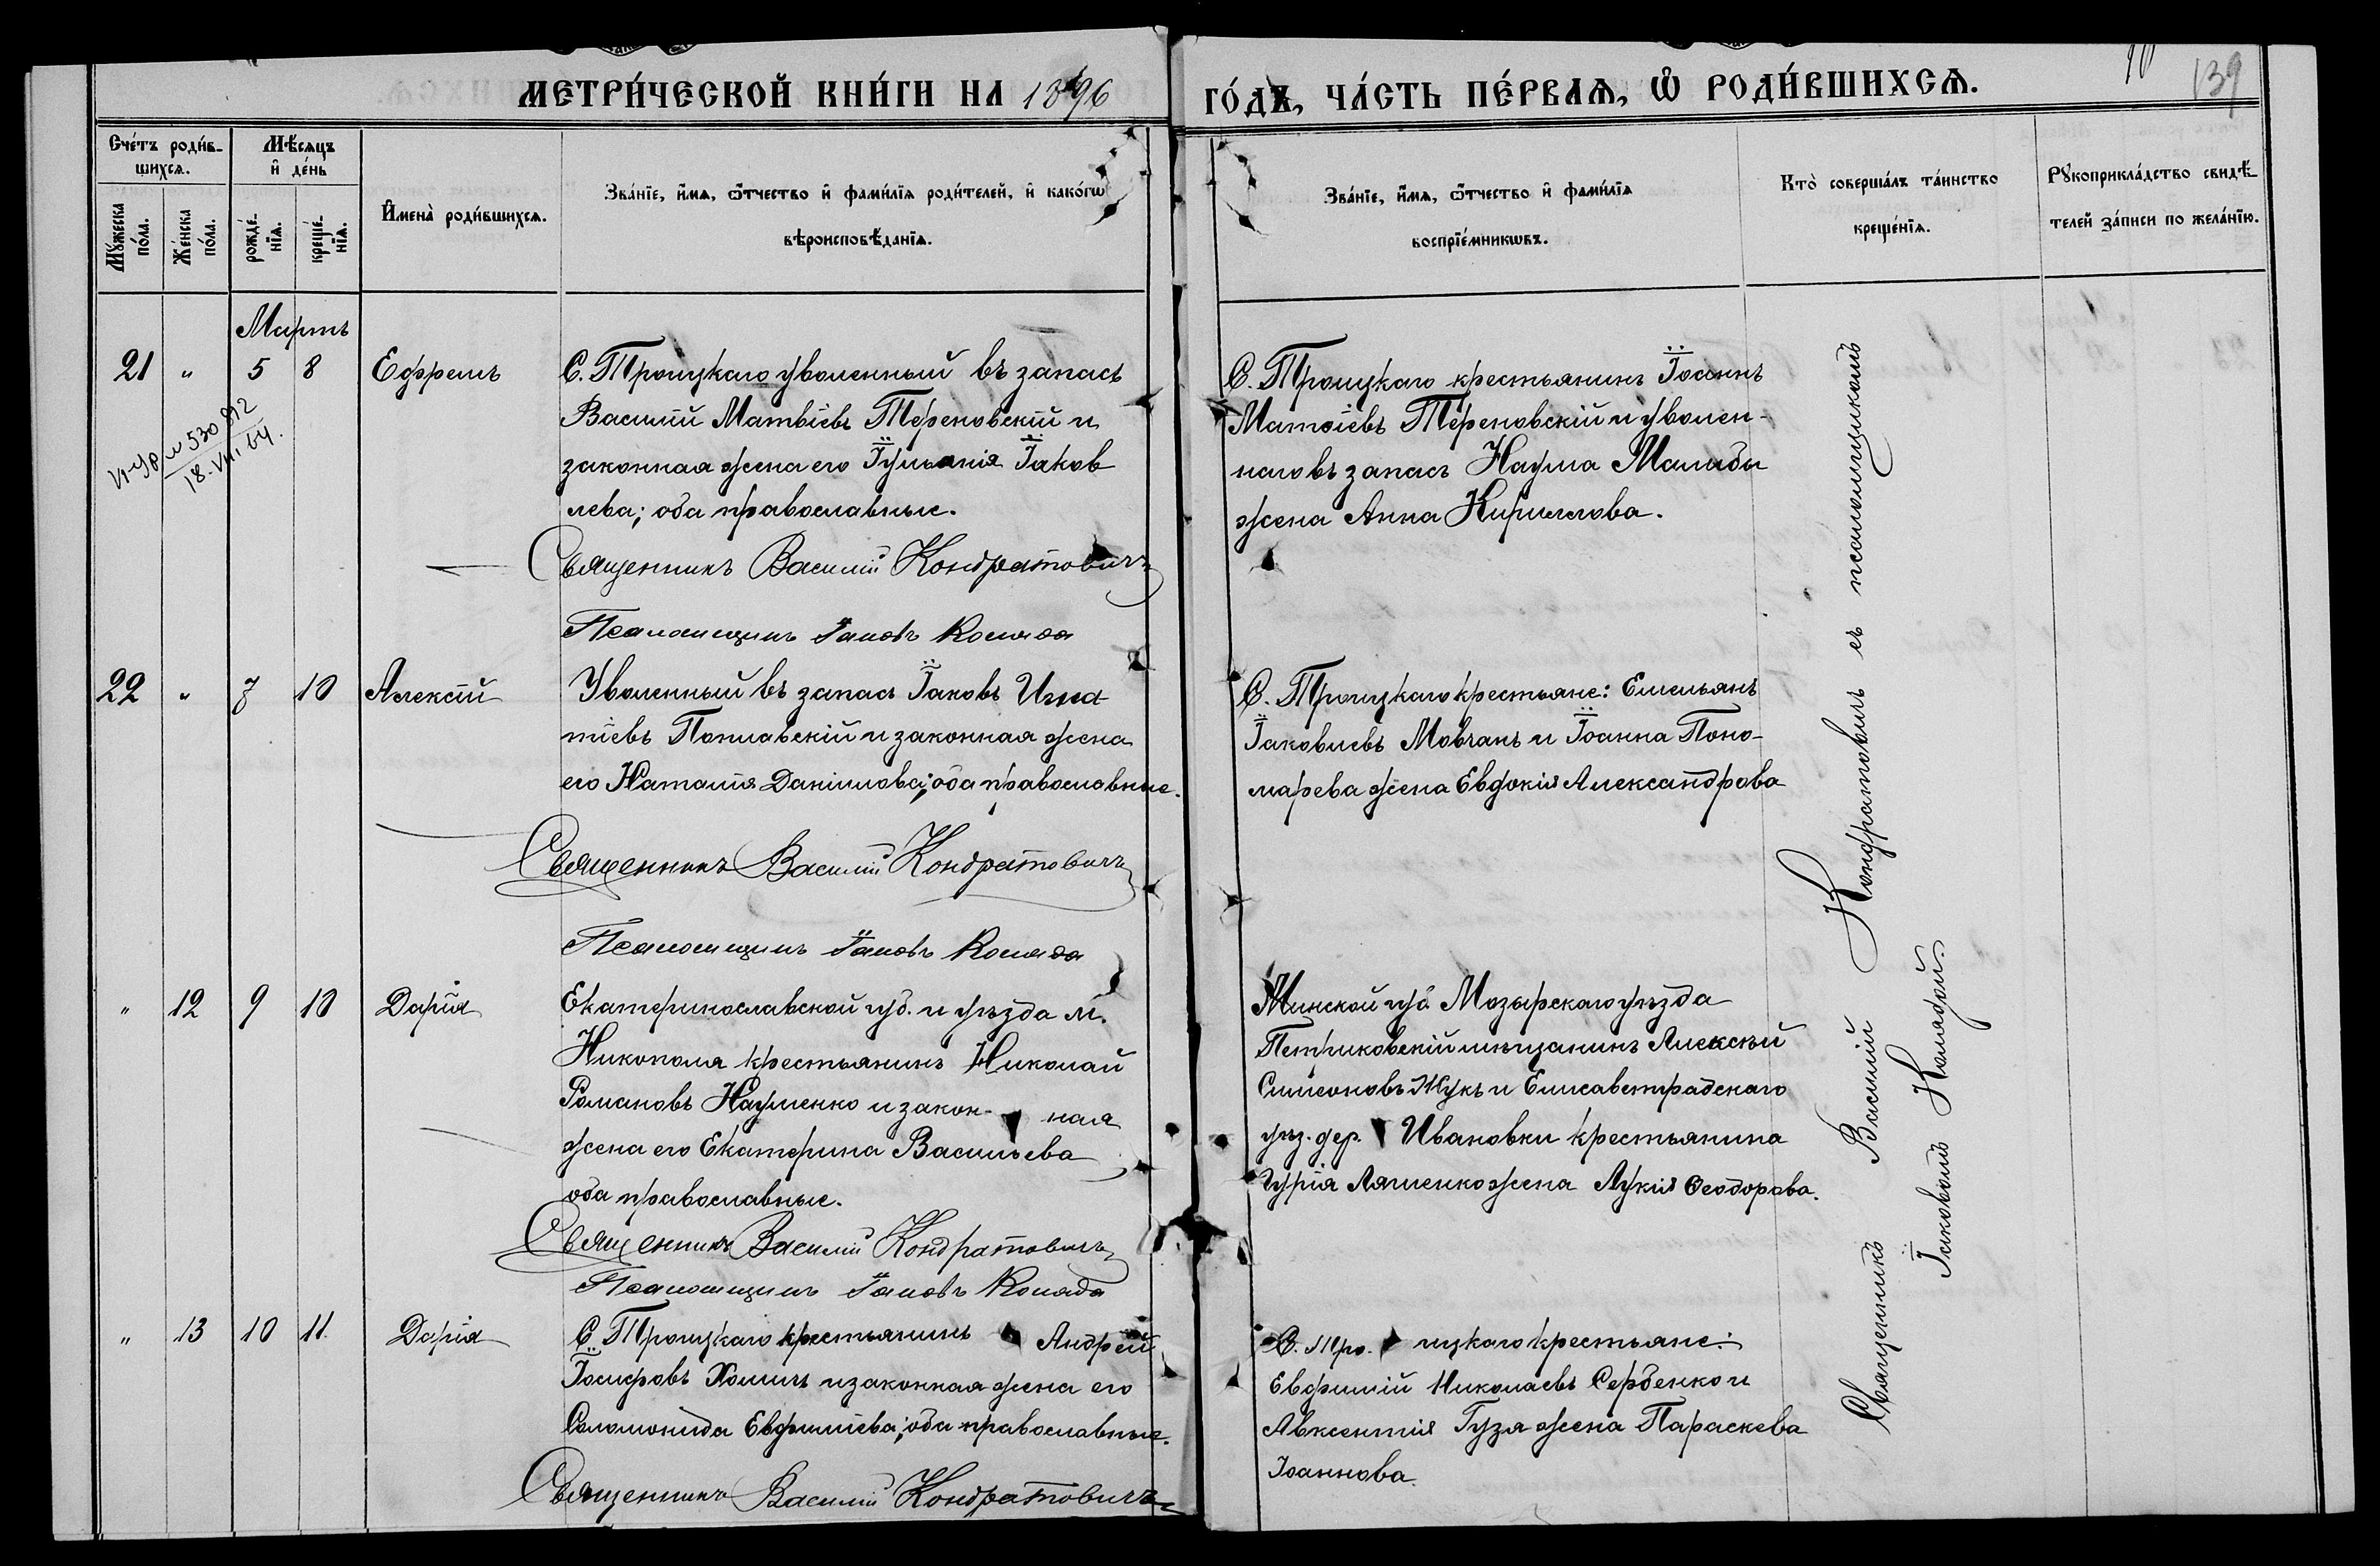 МЕТРИ́ЧЕСКОЙ КНИ́ГИ НА 1896
ГО́ДЪ, ЧА́СТЬ ПЕ́РВАѦ, Ѽ РОДИ́ВШИХСѦ.
139
Сче́тъ роди́в-
шихсѧ.
Мѣ́сѧцъ
и де́нь
Мꙋ́жеска
по́ла.
Же́нска
по́ла.
рожде́-
нїѧ.
креще́-
нїѧ.
Имена̀ роди́вшихсѧ.
Зва́нїе, и́мѧ, ѻ́тчество и фами́лїѧ роди́телей, и како́гѡ
вѣроисповѣ́данїѧ.
Зва́нїе, и́мѧ, ѻ́тчество и фами́лїѧ
воспрїе́мникѡвъ.
Кто̀ соверша́лъ та́инство
креще́нїѧ.
Рꙋкоприкла́дство свидѣ́-
телей за́писи по жела́нїю.
Мартъ
21 " 5 8 Ефремъ
С. Троицкаго уволенный въ запасъ
Василій Матвіевъ Тереновскій и
законная жена его Іуліанія Іаков
лева; оба православные.
Священникъ Василій Кондратовичъ
Псаломщикъ Іаковъ Коляда
С. Троицкаго крестьянинъ Іоаннъ
Матѳіевъ Тереновскій и уволен-
наго въ запасъ Наума Малыбы
жена Анна Кириллова.
530892
18.VIII 64.
22 " 7 10 Алексій
Уволенный въ запасъ Іаковъ Игна
тіевъ Поплавскій и законная жена
его Наталія Даніилова; оба православные.
Священникъ Василій Кондратовичъ
Псаломщикъ Іаковъ Коляда
С. Троицкаго крестьяне: Емельянъ
Іаковлевъ Мовчанъ и Іоанна Поно-
марева жена Евдокія Александрова
" 12 9 10 Дарія
Екатеринославской губ. и уѣзда м.
Никополя крестьянинъ Николай
Романовъ Науменко и закон- ная
жена его Екатерина Васильева
оба православные.
Священникъ Василій Кондратовичъ
Псаломщикъ Іаковъ Коляда
Минской губ. Мозырскаго уѣзда
Петриковскій мѣщанинъ Алексѣй
Симеоновъ Жукъ и Елисаветградскаго
уѣз. дер. Ивановки крестьянина
Гурія Ляшенко жена Лукія Ѳеодорова.
" 13 10 11 Дарія
С. Троицкаго крестьянинъ Андрей
Іосифовъ Хомичъ и законная жена его
Соломонида Евфиміева; оба православные.
Священникъ Василій Кондратовичъ
С. Тро- ицкаго крестьяне:
Евфимій Николаевъ Сербенко и
Авксентія Гузя жена Параскева
Іоаннова.
Священникъ Василій Кондратовичъ съ псаломщикомъ
Іаковомъ Колядой.